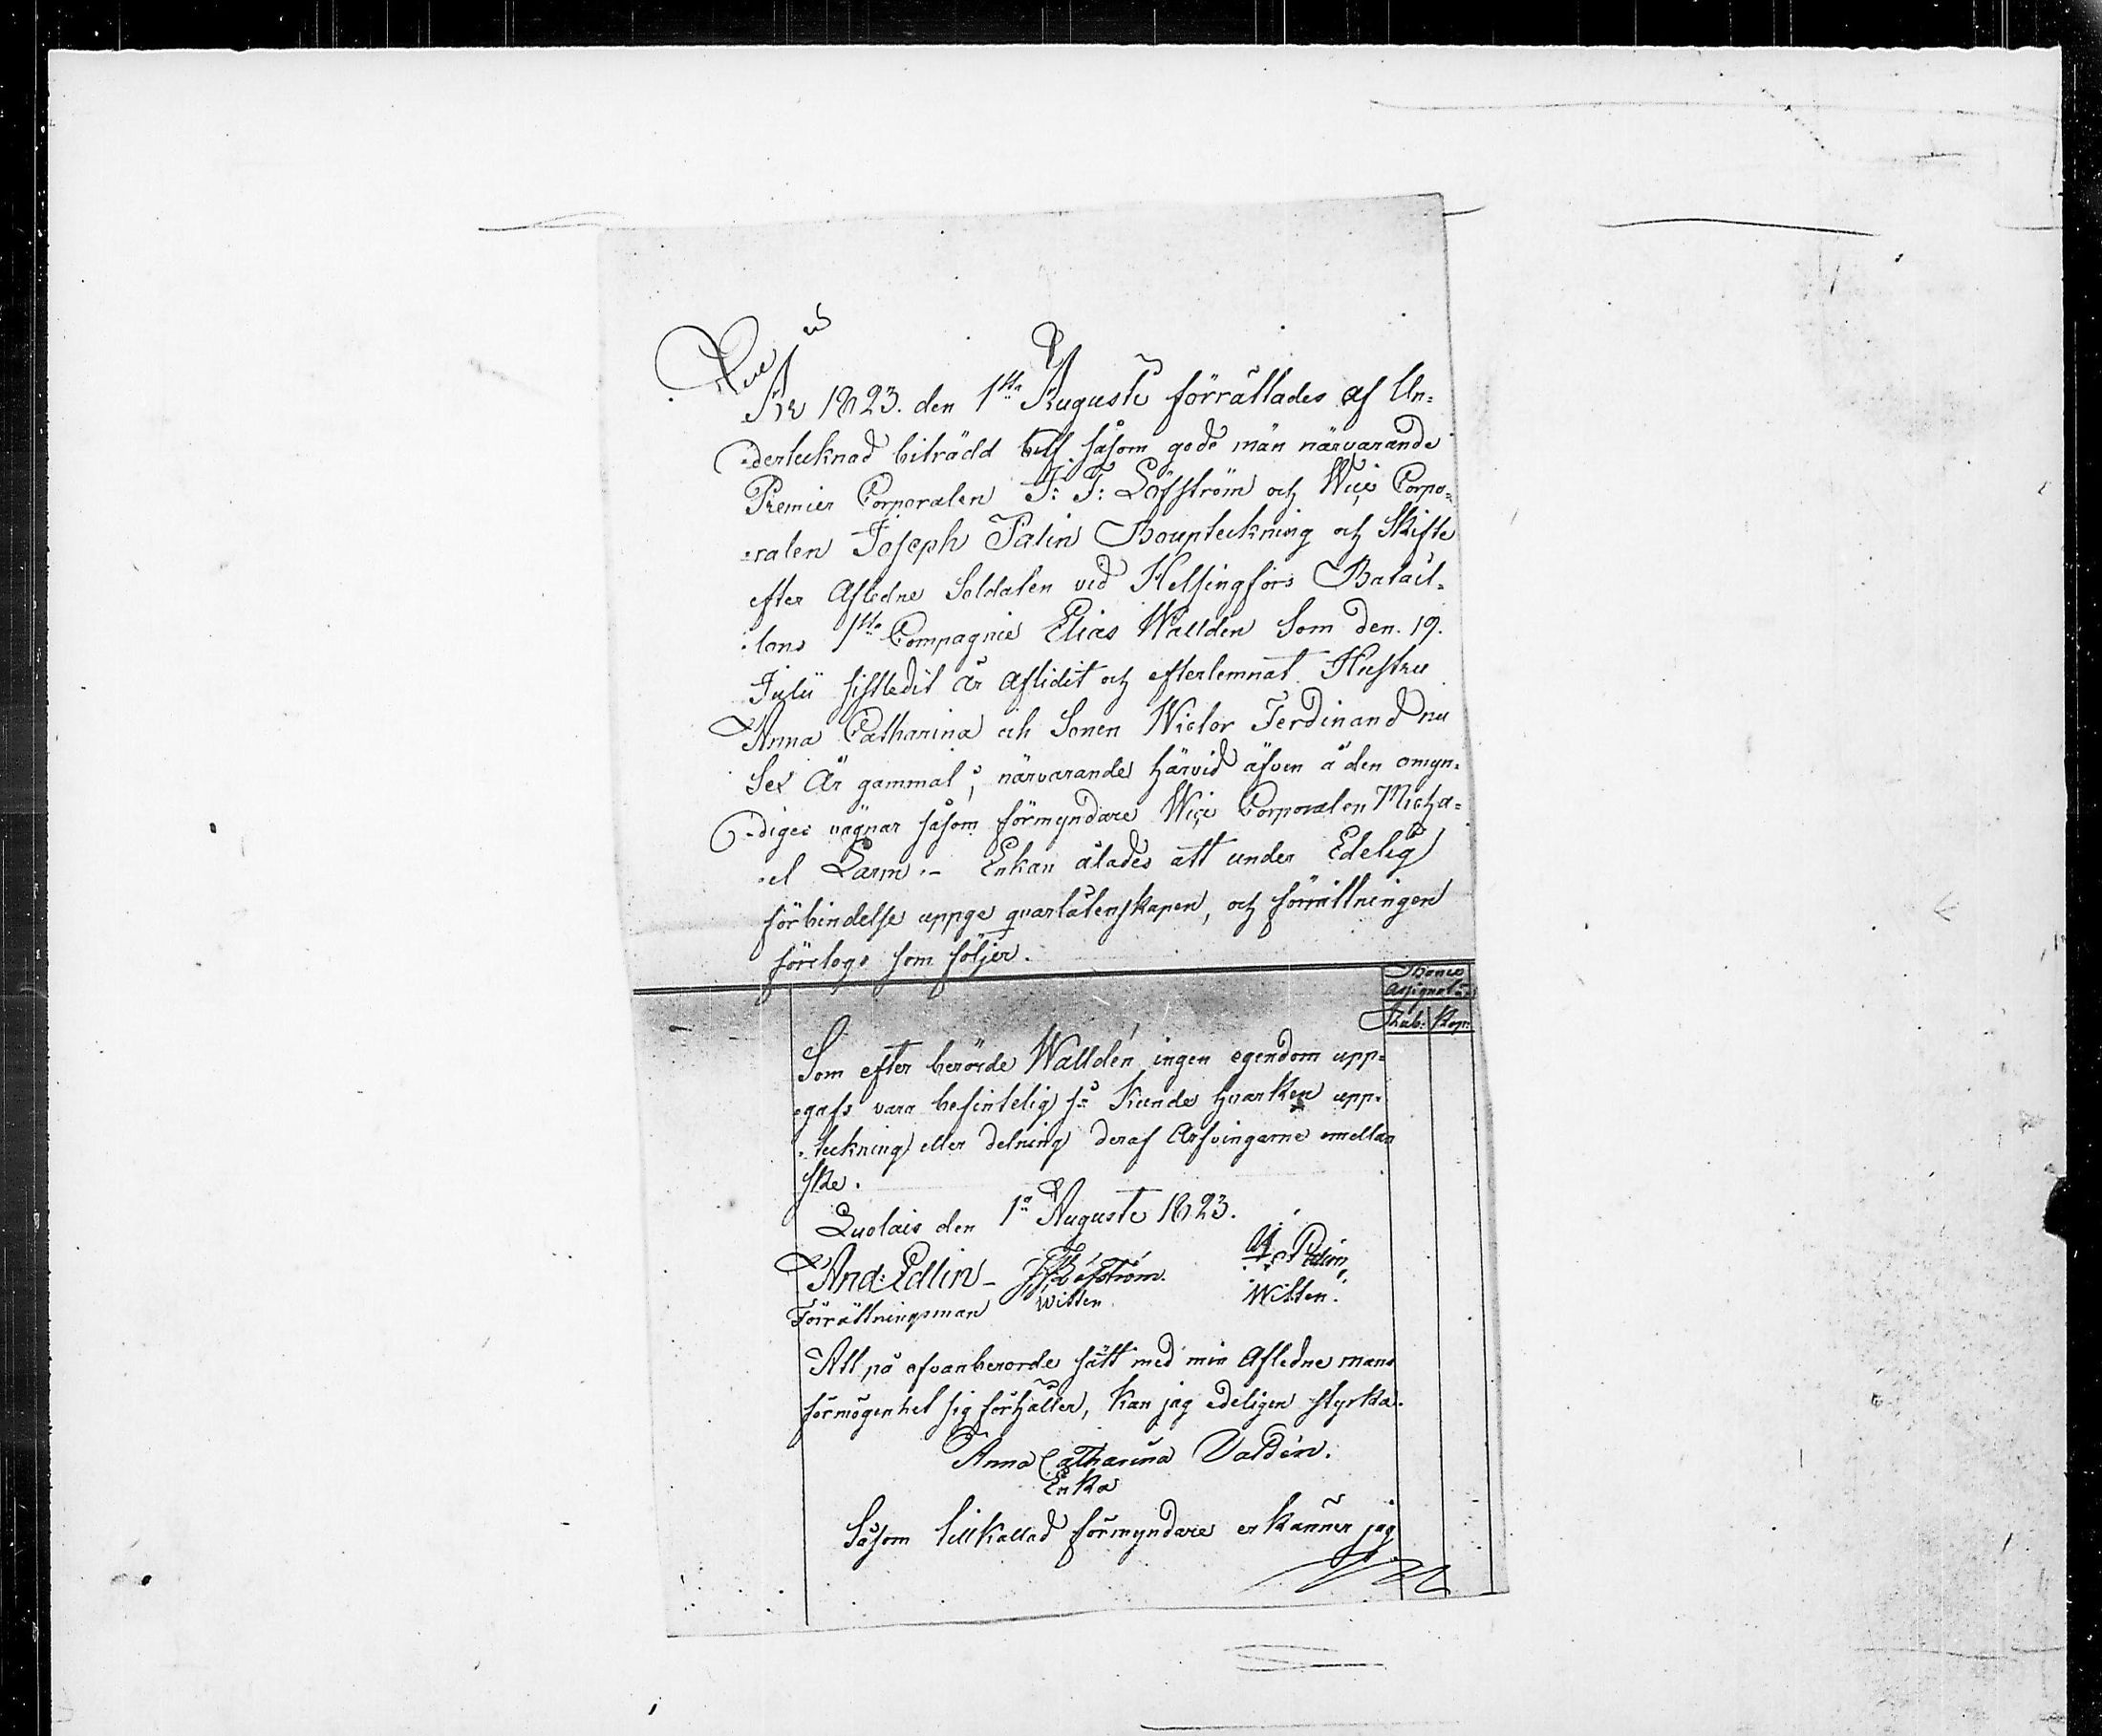 År 1823. den 1sta Augusti förrättades af Un=
=dertecknad biträdd utaf såsom gode män närvarande
Premier Corporalen J: F: Löfström och Wice Corpo=
=ralen Joseph Palin Boupteckning och Skifte
efter Aflidne Soldaten vid Helsingfors Batail=
=lons 1sta Compagnie Elias Walldén Som den 19.
Julii sistledit År aflidit och efterlemnat Hustru
Anna Catharina och Sonen Wictor Ferdinand nu
Sex År gammal; närvarande härvid äfven å den omyn=
=diges vägnar såsom förmyndare Wice Corporalen Micha=
=el Larm.- Enkan ålades att under Edelig
förbindelse uppge qvarlåtenskapen, och förrättningen
företogs som följer.
Banco
Assignat:
Rub: Kop:
Som efter berörde Walldén ingen egendom upp=
=gafs vara befintelig så Kunde hvarken upp=
=teckning eller delning deraf Arfvingarne emellan
ske.
Quolais den 1a Augusti 1823.
And: Edlin - JFLöfström. Palin,
Förrättningsman Witten Witten.
Att på ofvanberorde sätt med min Aflidne mans
förmögenhet sig förhåller, kan jag edeligen styrka.
Anna Catharina Valdén.
Enka
Såsom tillkallad förmyndare erkänner jag